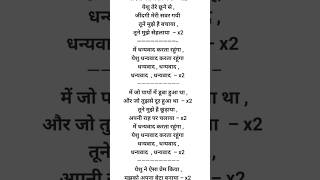 येशु तेरे छूने से ,
जीदगी मेरी सवर गयी
तूने मुझे है बचाया ,
तूने मुझे सेहलाया – x2
----------------
में धन्यवाद करता रहूंगा ,
येशु धन्यवाद करता रहूंगा
धन्यवाद , धन्यवाद ,
धन्यवाद , धन्यवाद – x2
----------------
में जो पापों में डूबा हुआ था ,
और जो तुझसे दूर हुआ था – x2
तूने मुझे है छुड़ाया ,
अपनी राह पर चलाया – x2
में धन्यवाद करता रहूंगा ,
येशु धन्यवाद करता रहूंगा
धन्यवाद , धन्यवाद ,
धन्यवाद , धन्यवाद – x2
----------------
येशु ने ऐसा प्रेम किया ,
मुझको अपना बेटा बनाया – x2
धन्यवाद
तूने